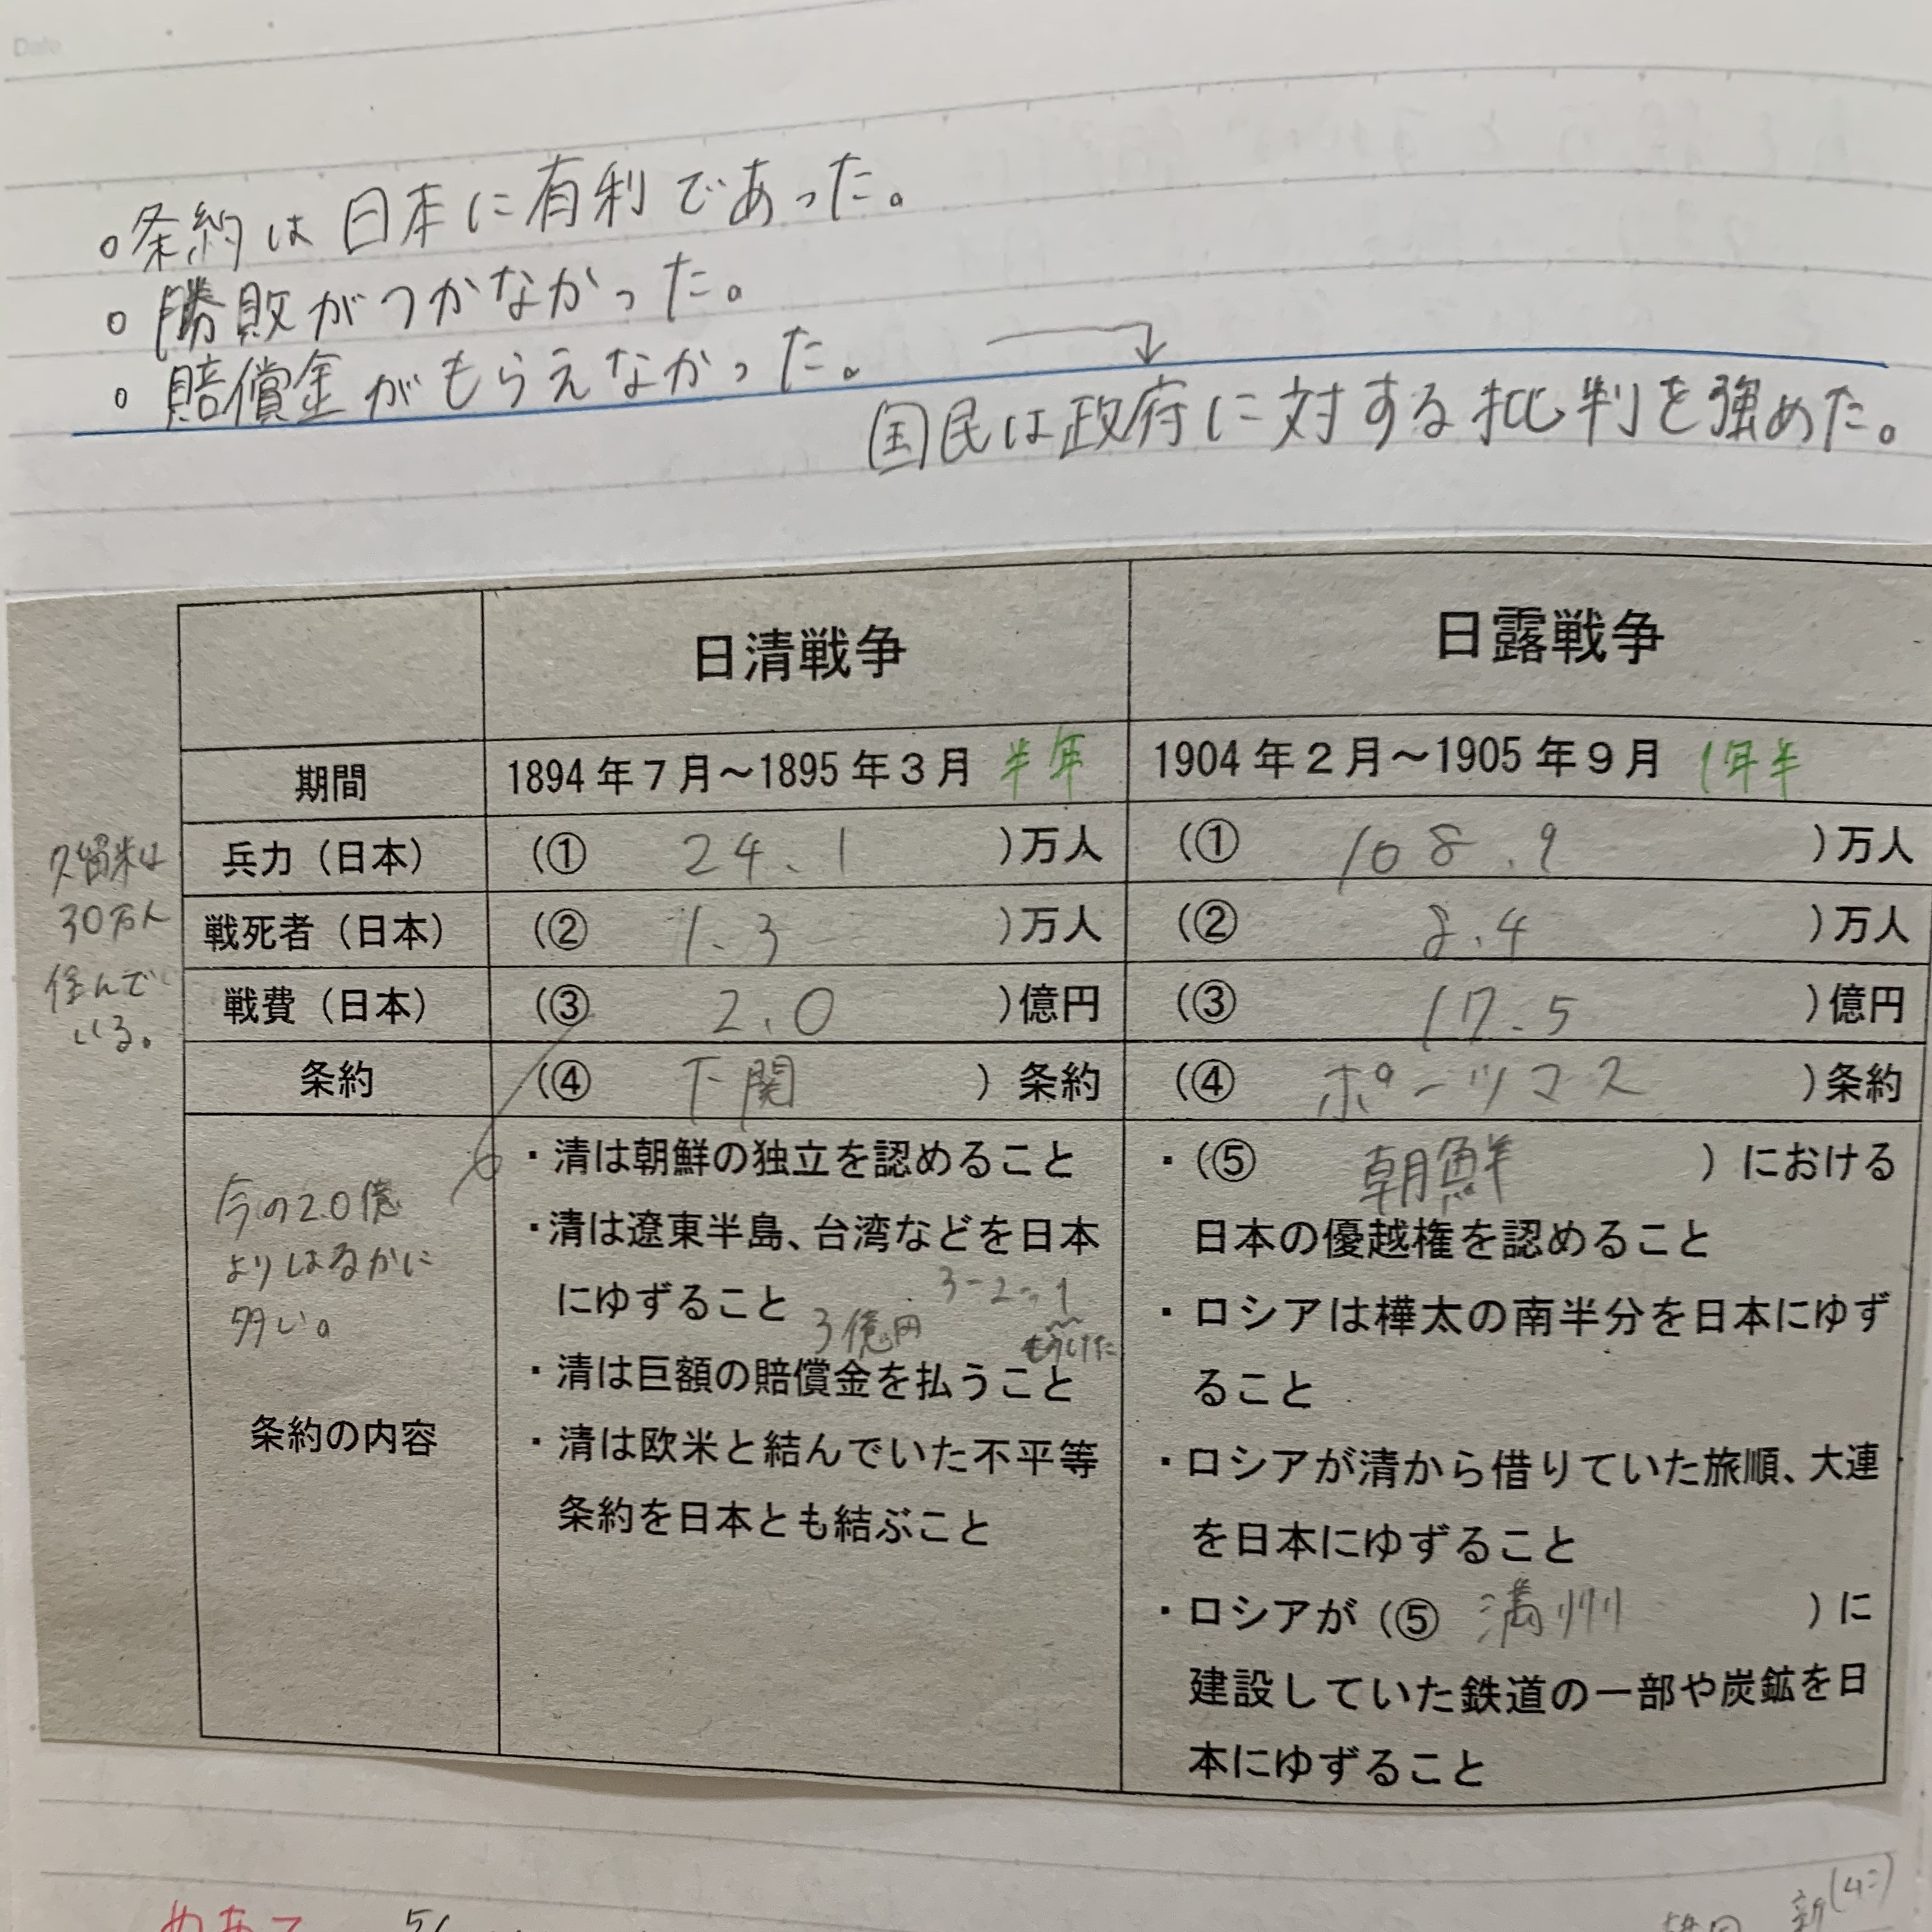 Date
○条約は日本に有利であった。
○勝敗がつかなかった。
○賠償金がもらえなかった。
国民は政府に対する批判を強めた。
日清戦争 日露戦争
期間 1894年7月～1895年3月 半年 1904年2月～1905年9月 1年半
兵力（日本） (① 24.1 )万人 (① 108.9 )万人
戦死者（日本） (② 1.3 )万人 (② 8.4 )万人
戦費（日本） (③ 2.0 )億円 (③ 17.5 )億円
条約 (④ 下関 ) 条約 (④ ポーツマス )条約
久留米は
30万人
住んで
いる。
今の2.0億
よりはるかに
多い。
条約の内容
・清は朝鮮の独立を認めること
・清は遼東半島、台湾などを日本
にゆずること
3億円 3-2=1
もうけた
・清は巨額の賠償金を払うこと
・清は欧米と結んでいた不平等
条約を日本とも結ぶこと
・(⑤ 朝鮮 ) における
日本の優越権を認めること
・ロシアは樺太の南半分を日本にゆず
ること
・ロシアが清から借りていた旅順、大連
を日本にゆずること
・ロシアが (⑤ 満州 ) に
建設していた鉄道の一部や炭鉱を日
本にゆずること
めあて